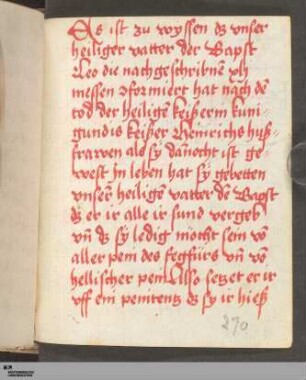 Es ist zu wyssen dz vnser
heiliger vatter der Bapst
Leo die nachgeschribnē xlj
messen 9formiert hat nach dē
tod der heiligē keißerin kuni
gundis keißer Heinrichs huß-
frawen als sy dānocht ist ge
west jn leben hat sy gebetten
vnserē heiligē vatter dē Bapst
dz er ir alle ir sund vergeb
vn̄ dz sy ledig mocht sein vō
aller pein des fegfürs vn̄ vō
hellischer pein Also setzet er ir
vff ein penitentz dz sy ir hieß
270